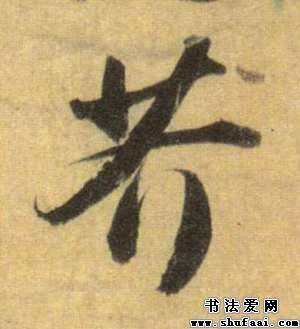 芥
书法爱网
www.shufaai.com